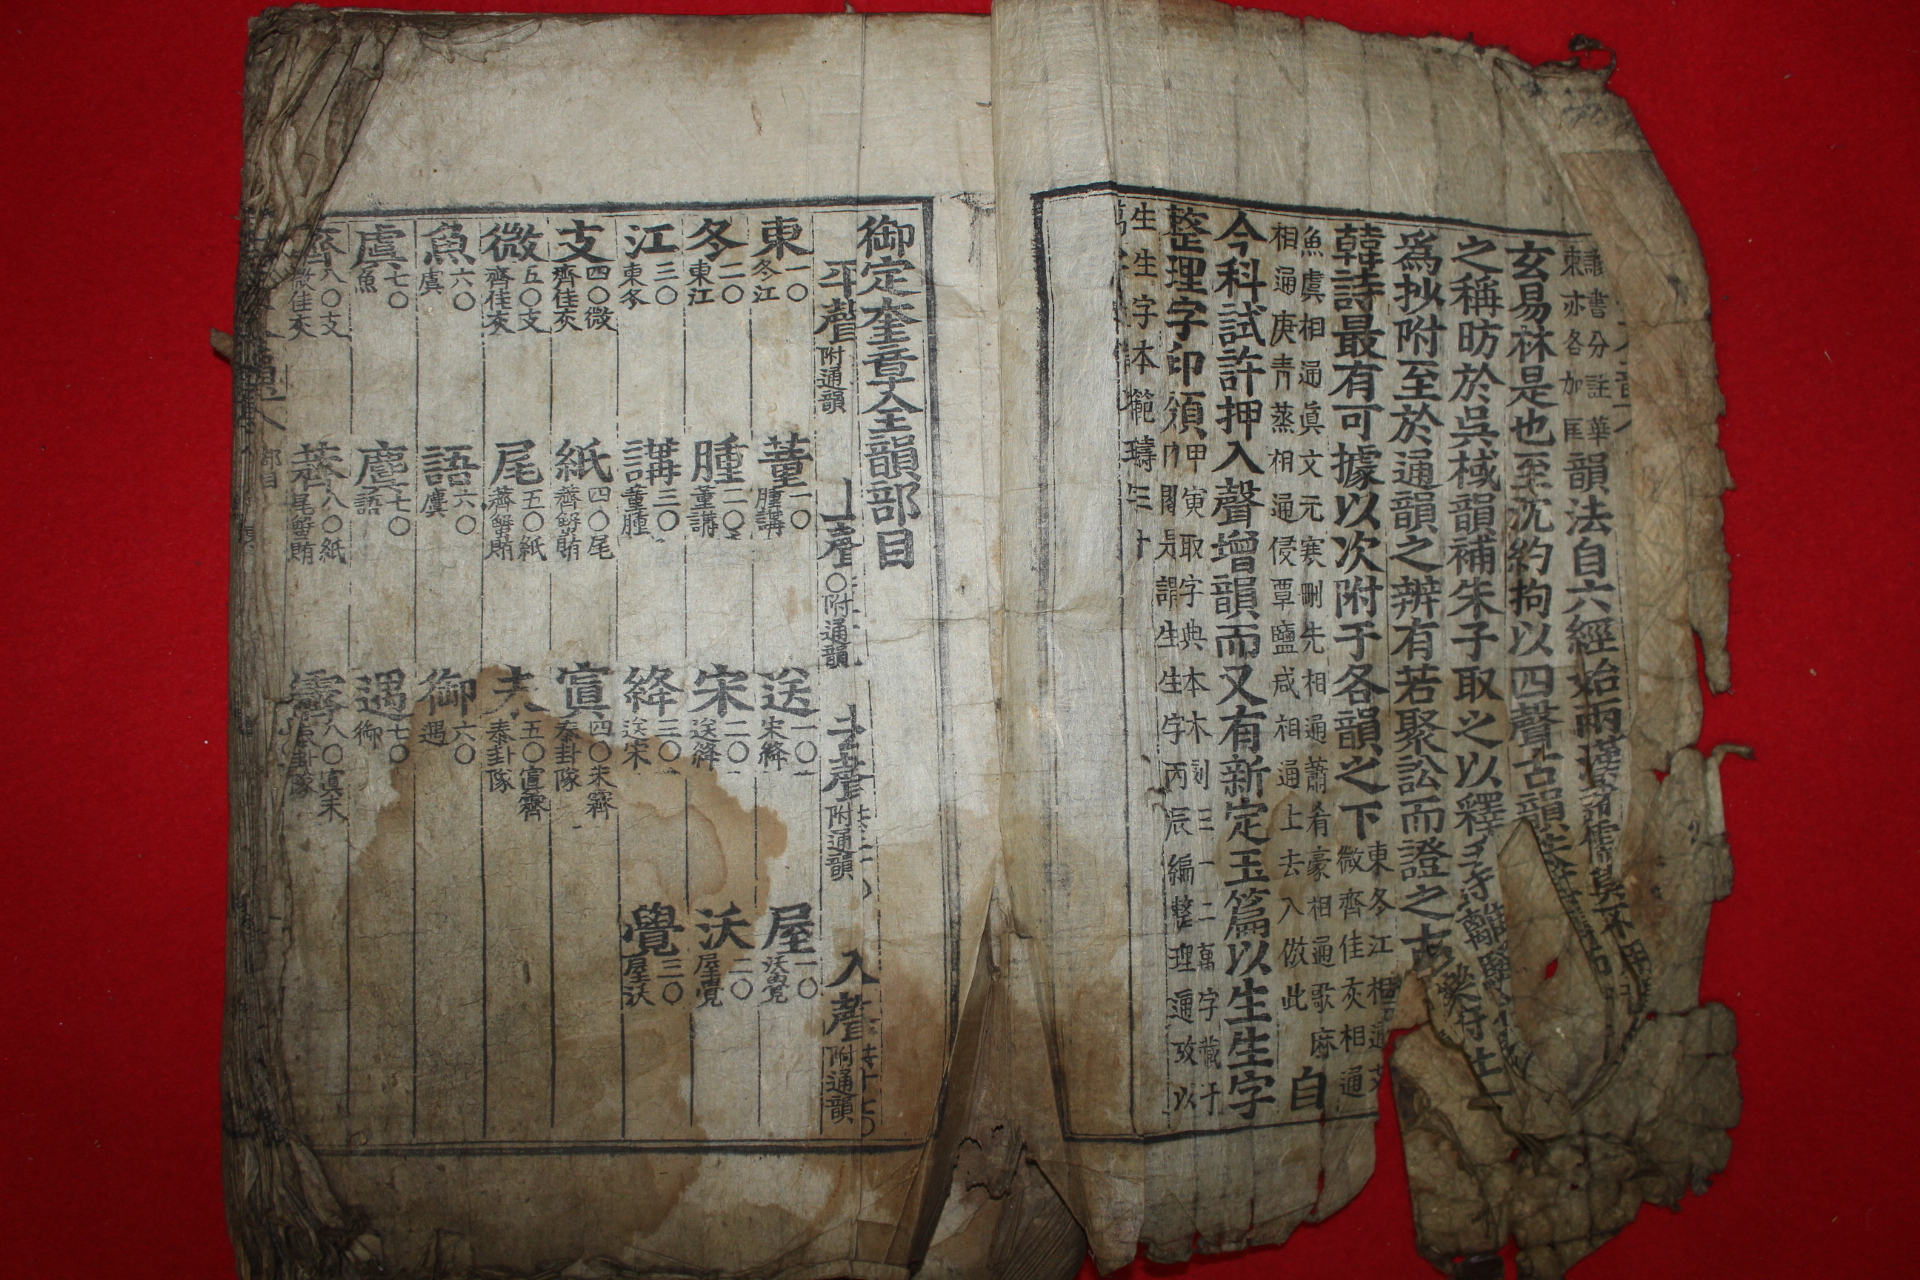 東亦各加匡
讀書分註華
韻法自六經始兩漢
玄易林是也至沈約拘以四聲古韻
之稱昉於吳棫韻補朱子取之以釋
爲抄附至於通韻之辨有若聚訟而證之古
韓詩最有可據以次附于各韻之下
東冬江相通支
微齊佳灰相通
魚虞相通眞文元寒刪先相通蕭肴豪相通歌麻
相通庚靑蒸相通侵覃鹽咸相通上去入倣此
自
今科試許押入聲增韻而又有新定玉篇以生生字
整理字印頒
甲寅取字典本木刻三十二萬字藏于
內閣是謂生生字丙辰編整理通攷以
生生字本範鑄三十
御定奎章全韻部目
平聲
附通韻
上聲
○附通韻
去聲
附通韻
入聲
附通韻
東 一○冬江
董 一○腫講
送 一○宋絳
屋 一○沃覺
冬 二○東江
腫 二○董講
宋 二○送絳
沃 二○屋覺
江 三○東冬
講 三○董腫
絳 三○送宋
覺 三○屋沃
支 四○微齊佳灰
紙 四○尾薺蟹賄
寘 四○未霽泰卦隊
微 五○支齊佳灰
尾 五○紙薺蟹賄
未 五○寘霽泰卦隊
魚 六○虞
語 六○麌
御 六○遇
虞 七○魚
麌 七○語
遇 七○御
齊 八○支微佳灰
薺 八○紙尾蟹賄
霽 八○寘未泰卦隊